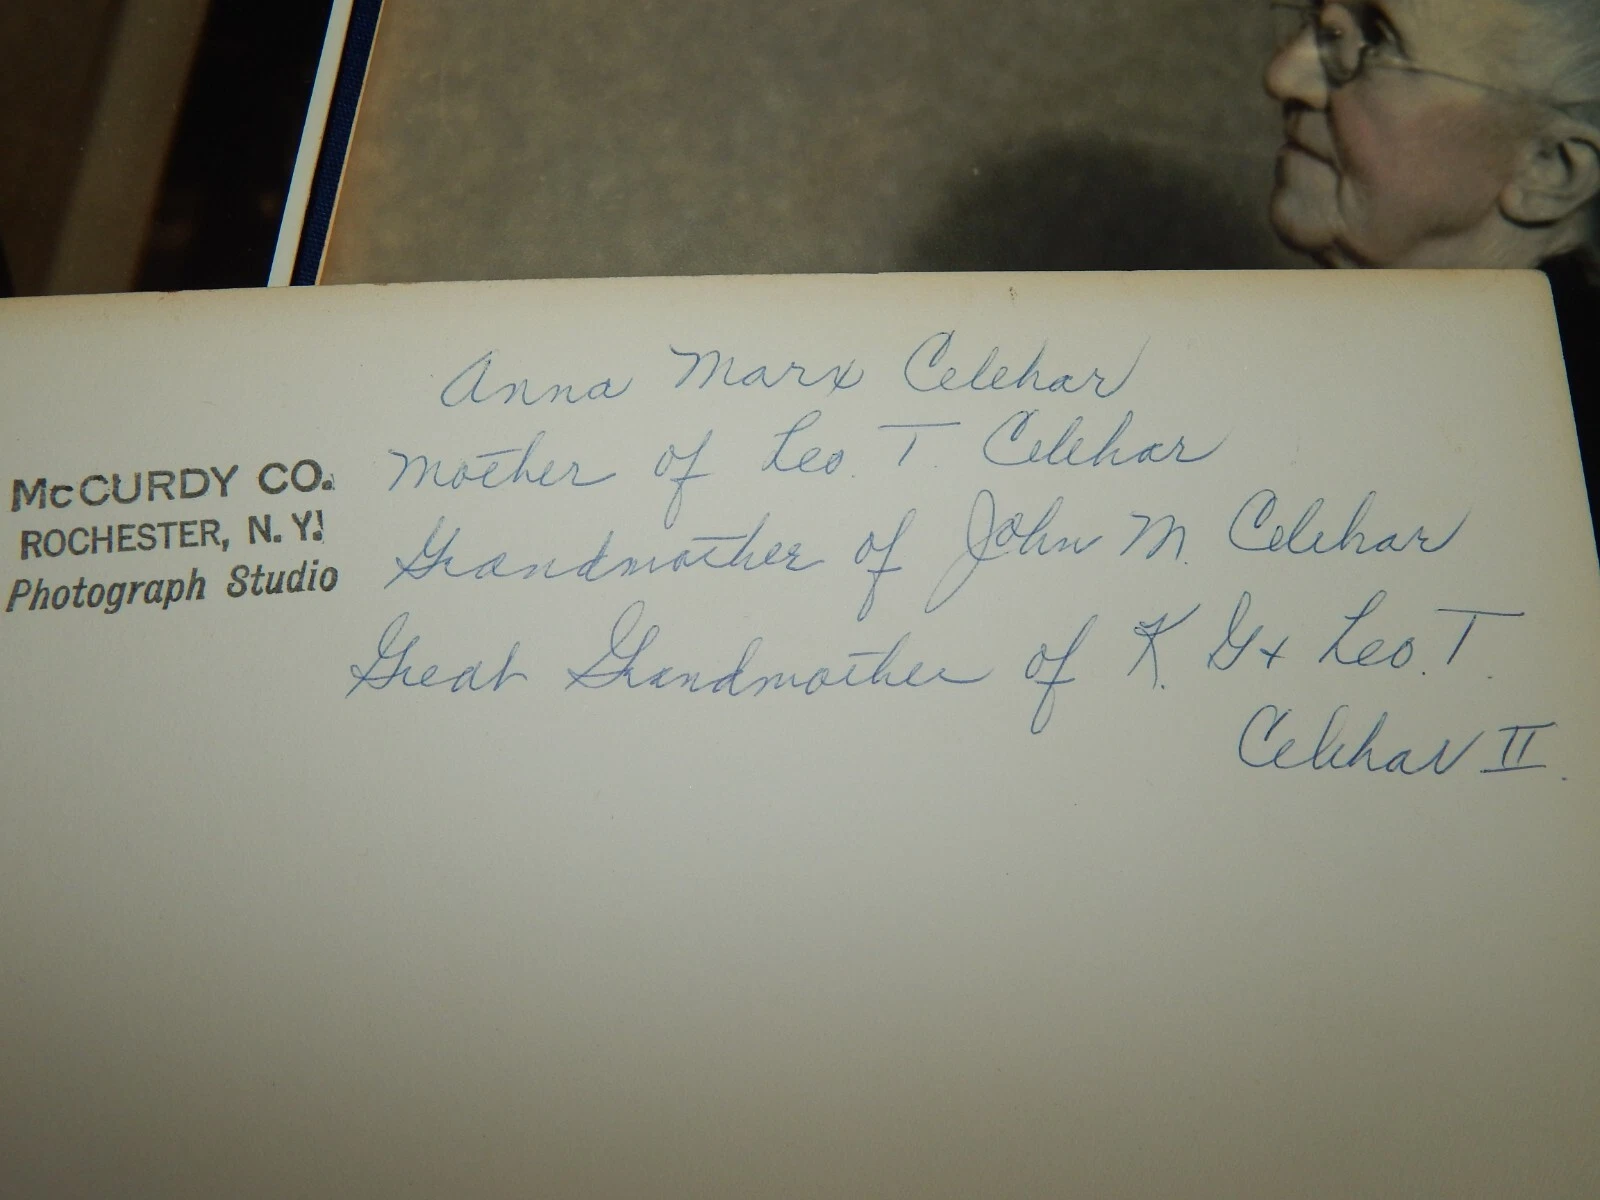 Anna Marx Celehar
Mother of Leo. T. Celehar
McCURDY CO.
ROCHESTER, N. Y.
Photograph Studio
Grandmother of John M. Celehar
Great Grandmother of K. G + Leo. T.
Celehar II.